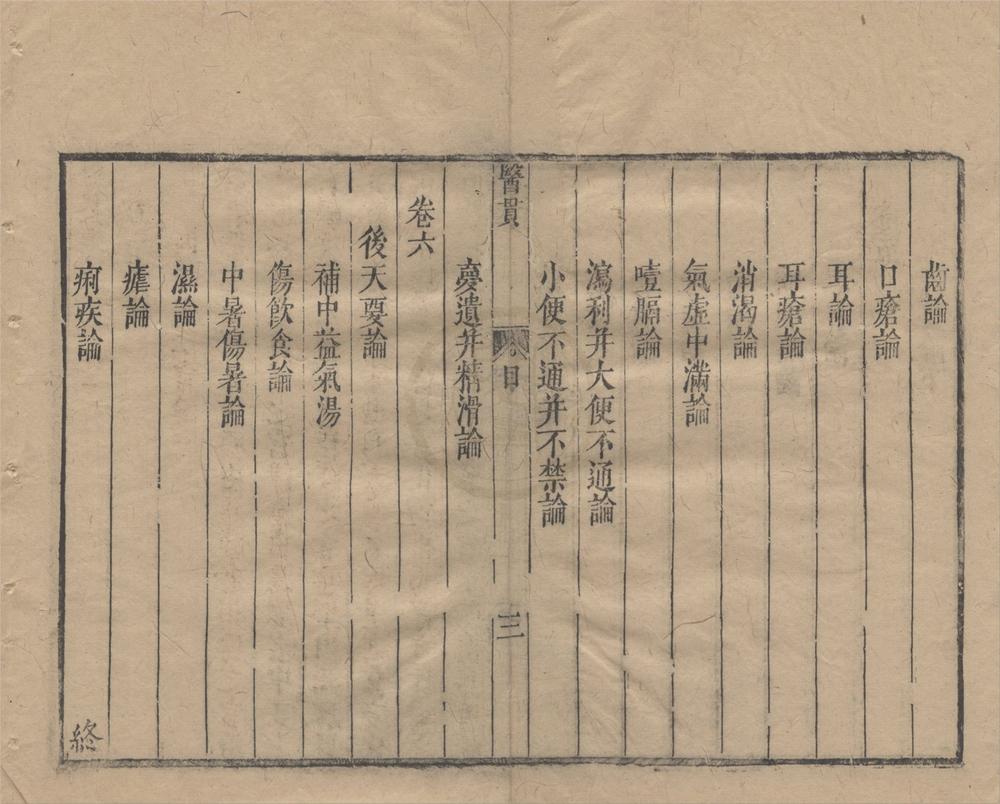 齒論
口瘡論
耳論
耳瘡論
消渴論
氣虛中滿論
噎膈論
瀉利并大便不通論
小便不通并不禁論
醫貫
目
三
夢遺并精滑論
卷六
後天要論
補中益氣湯
傷飲食論
中暑傷暑論
濕論
瘧論
痢疾論
終